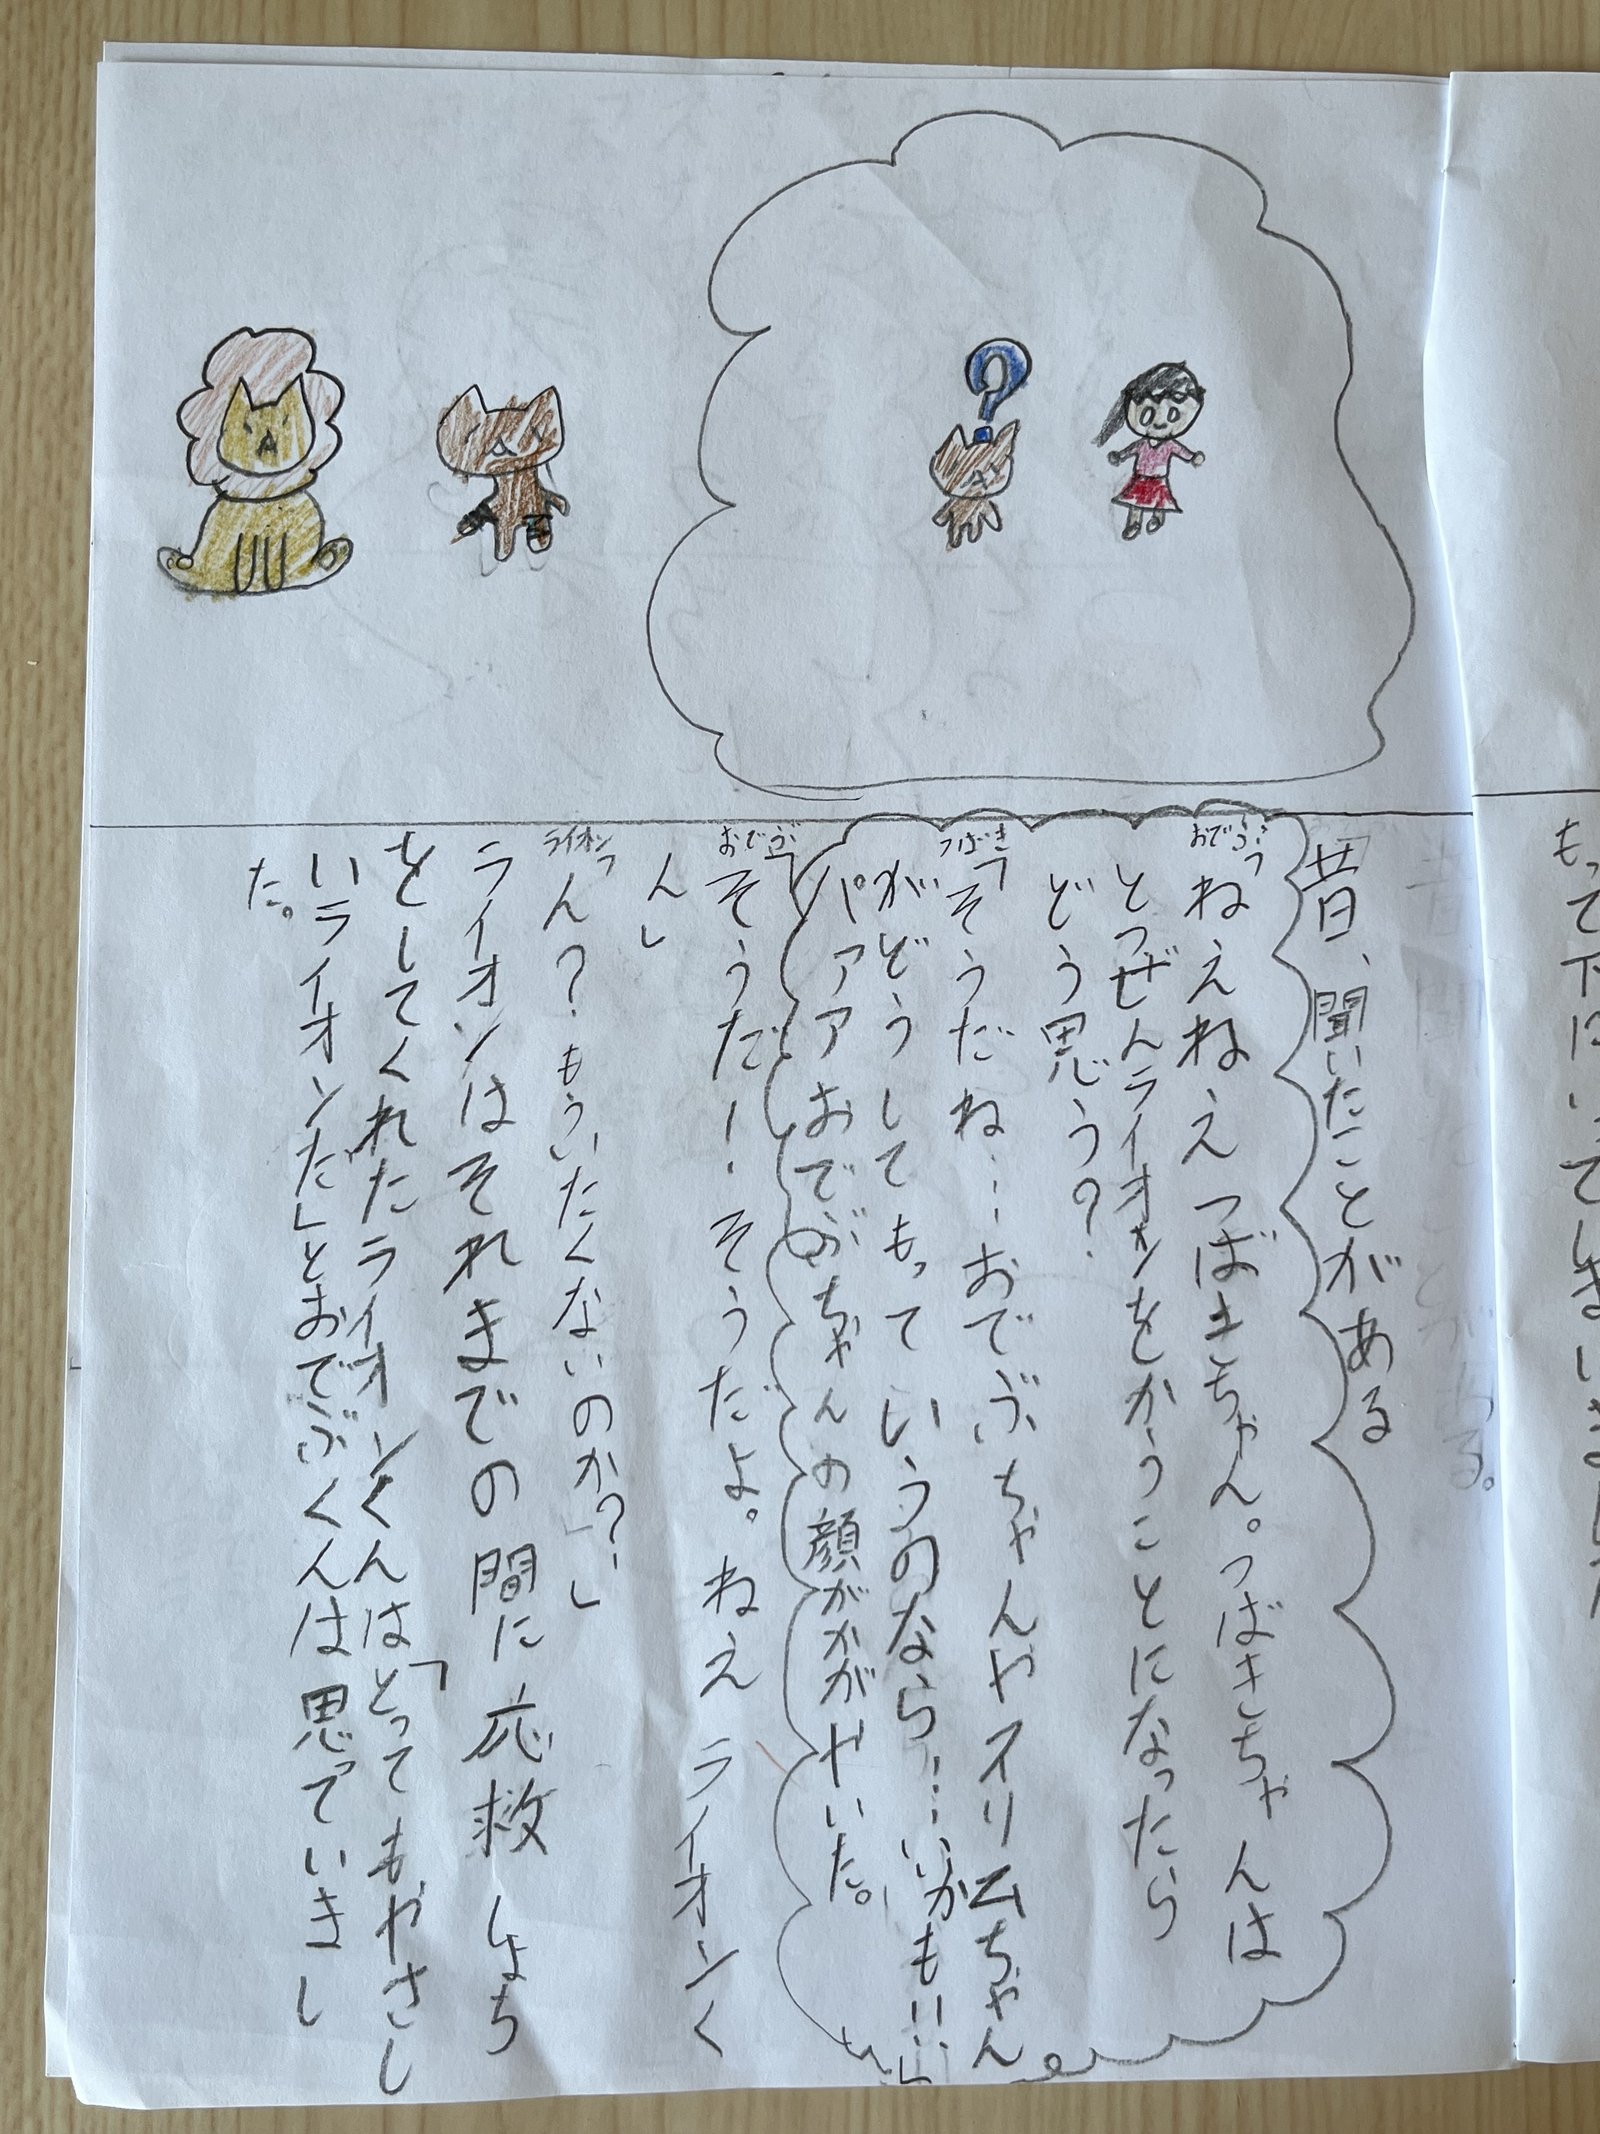 もって下にいってしまいました
「昔、聞いたことがある
おでぶ「ねえねえつばきちゃん。つばきちゃんは
とつぜんライオンをかうことになったら
どう思う?
つばき「そうだね…おでぶちゃんやスリムちゃん
がどうしてもっていうのなら…いいかもﾘ…」
パァアアおでぶちゃんの顔がかがやいた。
おでぶ「そうだ!そうだよ。ねえライオンく
ん」
ライオン「ん?もういたくないのか?」
ライオンはそれまでの間に応救しょち
をしてくれたライオンくんは「とってもやさし
いライオンだ」とおでぶくんは思っていまし
た。